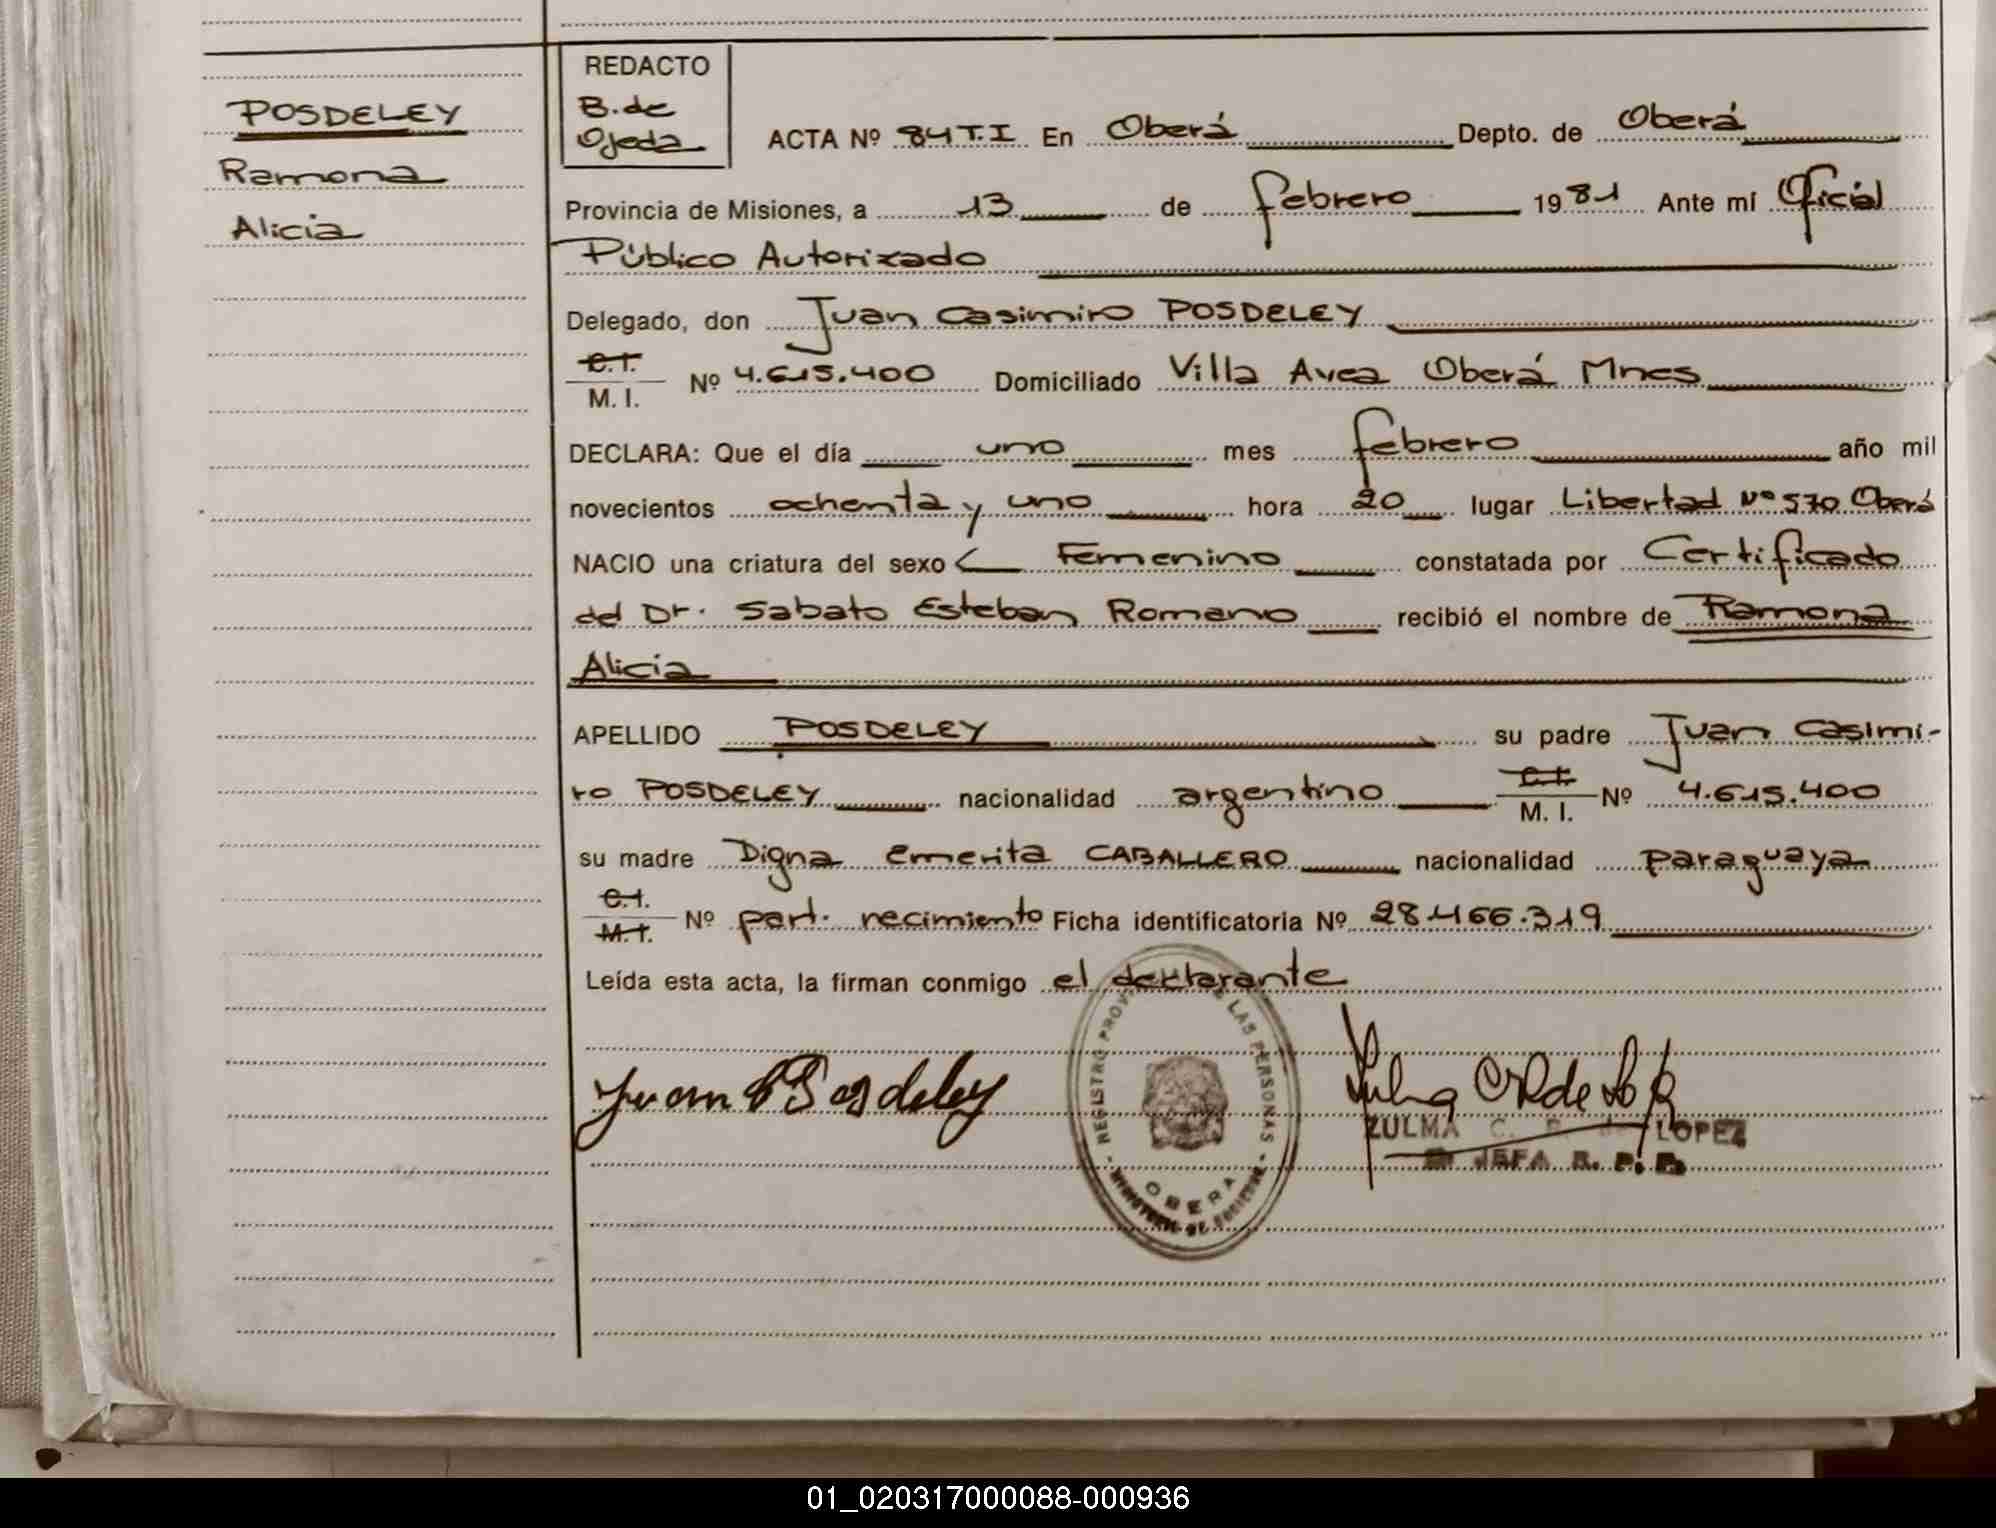 POSDELEY
Ramona
Alicia
REDACTO
B. de
Ojeda
ACTA Nº 84 T.I En Oberá Depto. de Oberá
Provincia de Misiones, a 13 de febrero 1981 Ante mí Oficial
Público Autorizado
Delegado, don Juan Casimiro POSDELEY
C.I.
M. I. Nº 4.615.400 Domiciliado Villa Avea Oberá Mnes
DECLARA: Que el día uno mes febrero año mil
novecientos ochenta y uno hora 20 lugar Libertad Nº 570 Oberá
NACIO una criatura del sexo Femenino constatada por Certificado
del Dr. Sabato Esteban Romano recibió el nombre de Ramona
Alicia
APELLIDO POSDELEY su padre Juan Casimi-
ro POSDELEY nacionalidad argentino C.I.
M. I. Nº 4.615.400
su madre Digna emerita CABALLERO nacionalidad paraguaya
C.I.
M.I. Nº part. necimiento Ficha identificatoria Nº 28.466.319
Leída esta acta, la firman conmigo el declarante
REGISTRO PROV LAS PERSONAS
OBERA
MINISTERIO DE
Juan Posdeley
ZULMA C. de LOPEZ
JEFA R. P. P.
01_020317000088-000936